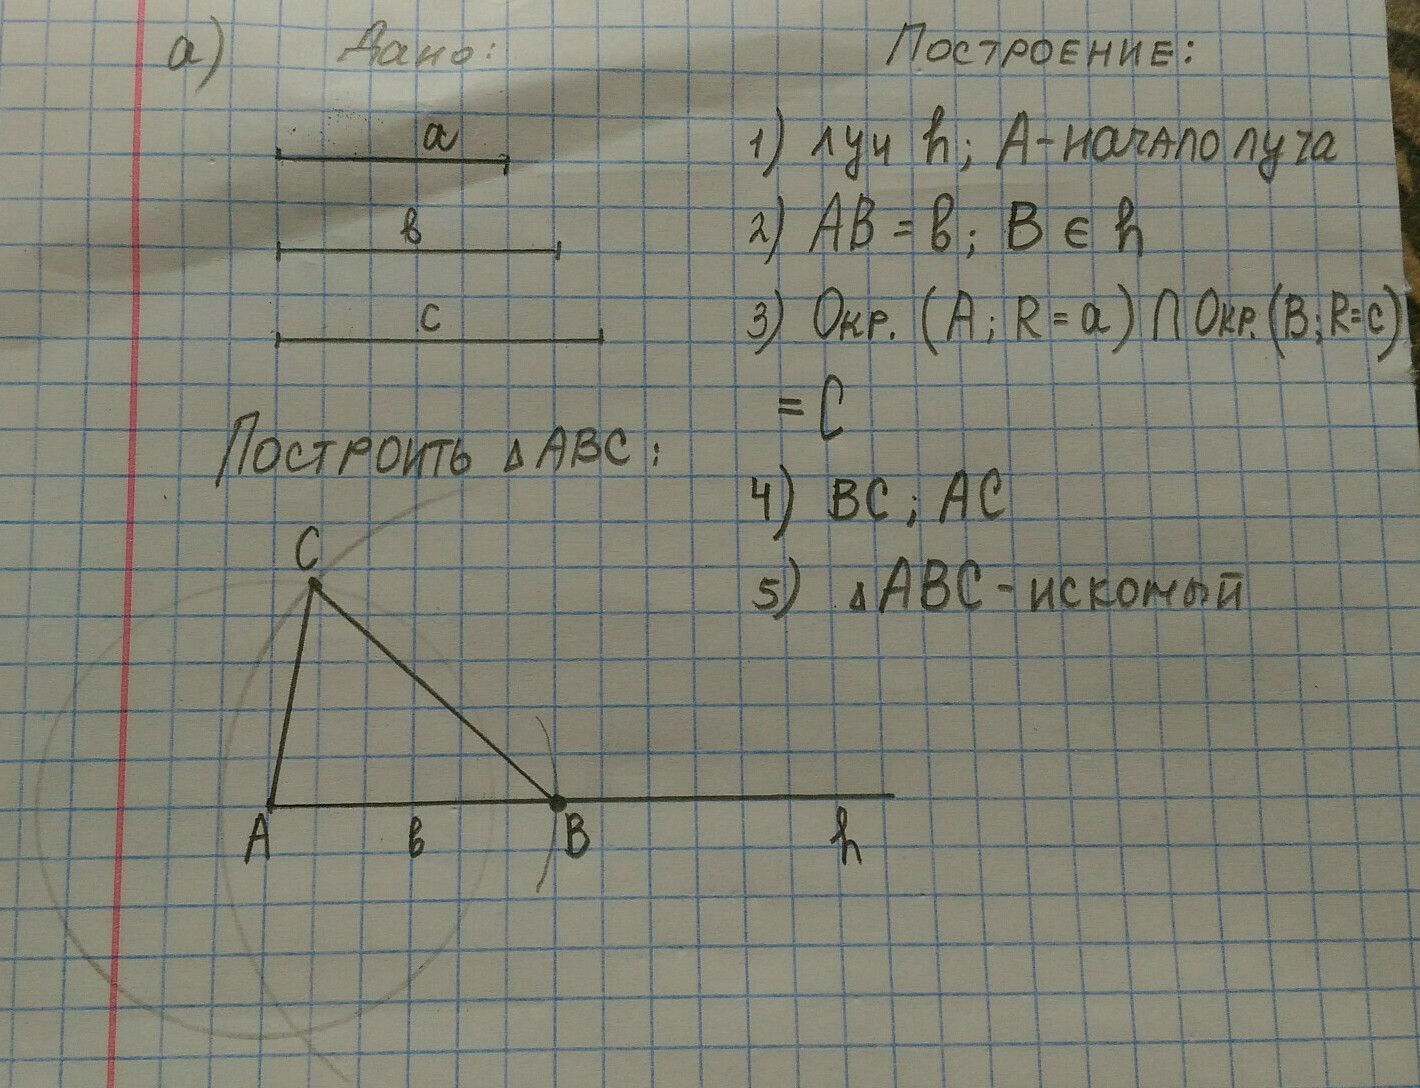 а) Дано:
a
в
c
Построить △ABC:
C
A
в
B
h
Построение:
1) луч h; A-начало луча
2) AB = в; B ∈ h
3) Окр. (A; R = a) ∩ Окр. (B; R=c)
= C
4) BC; AC
5) △ABC - искомый